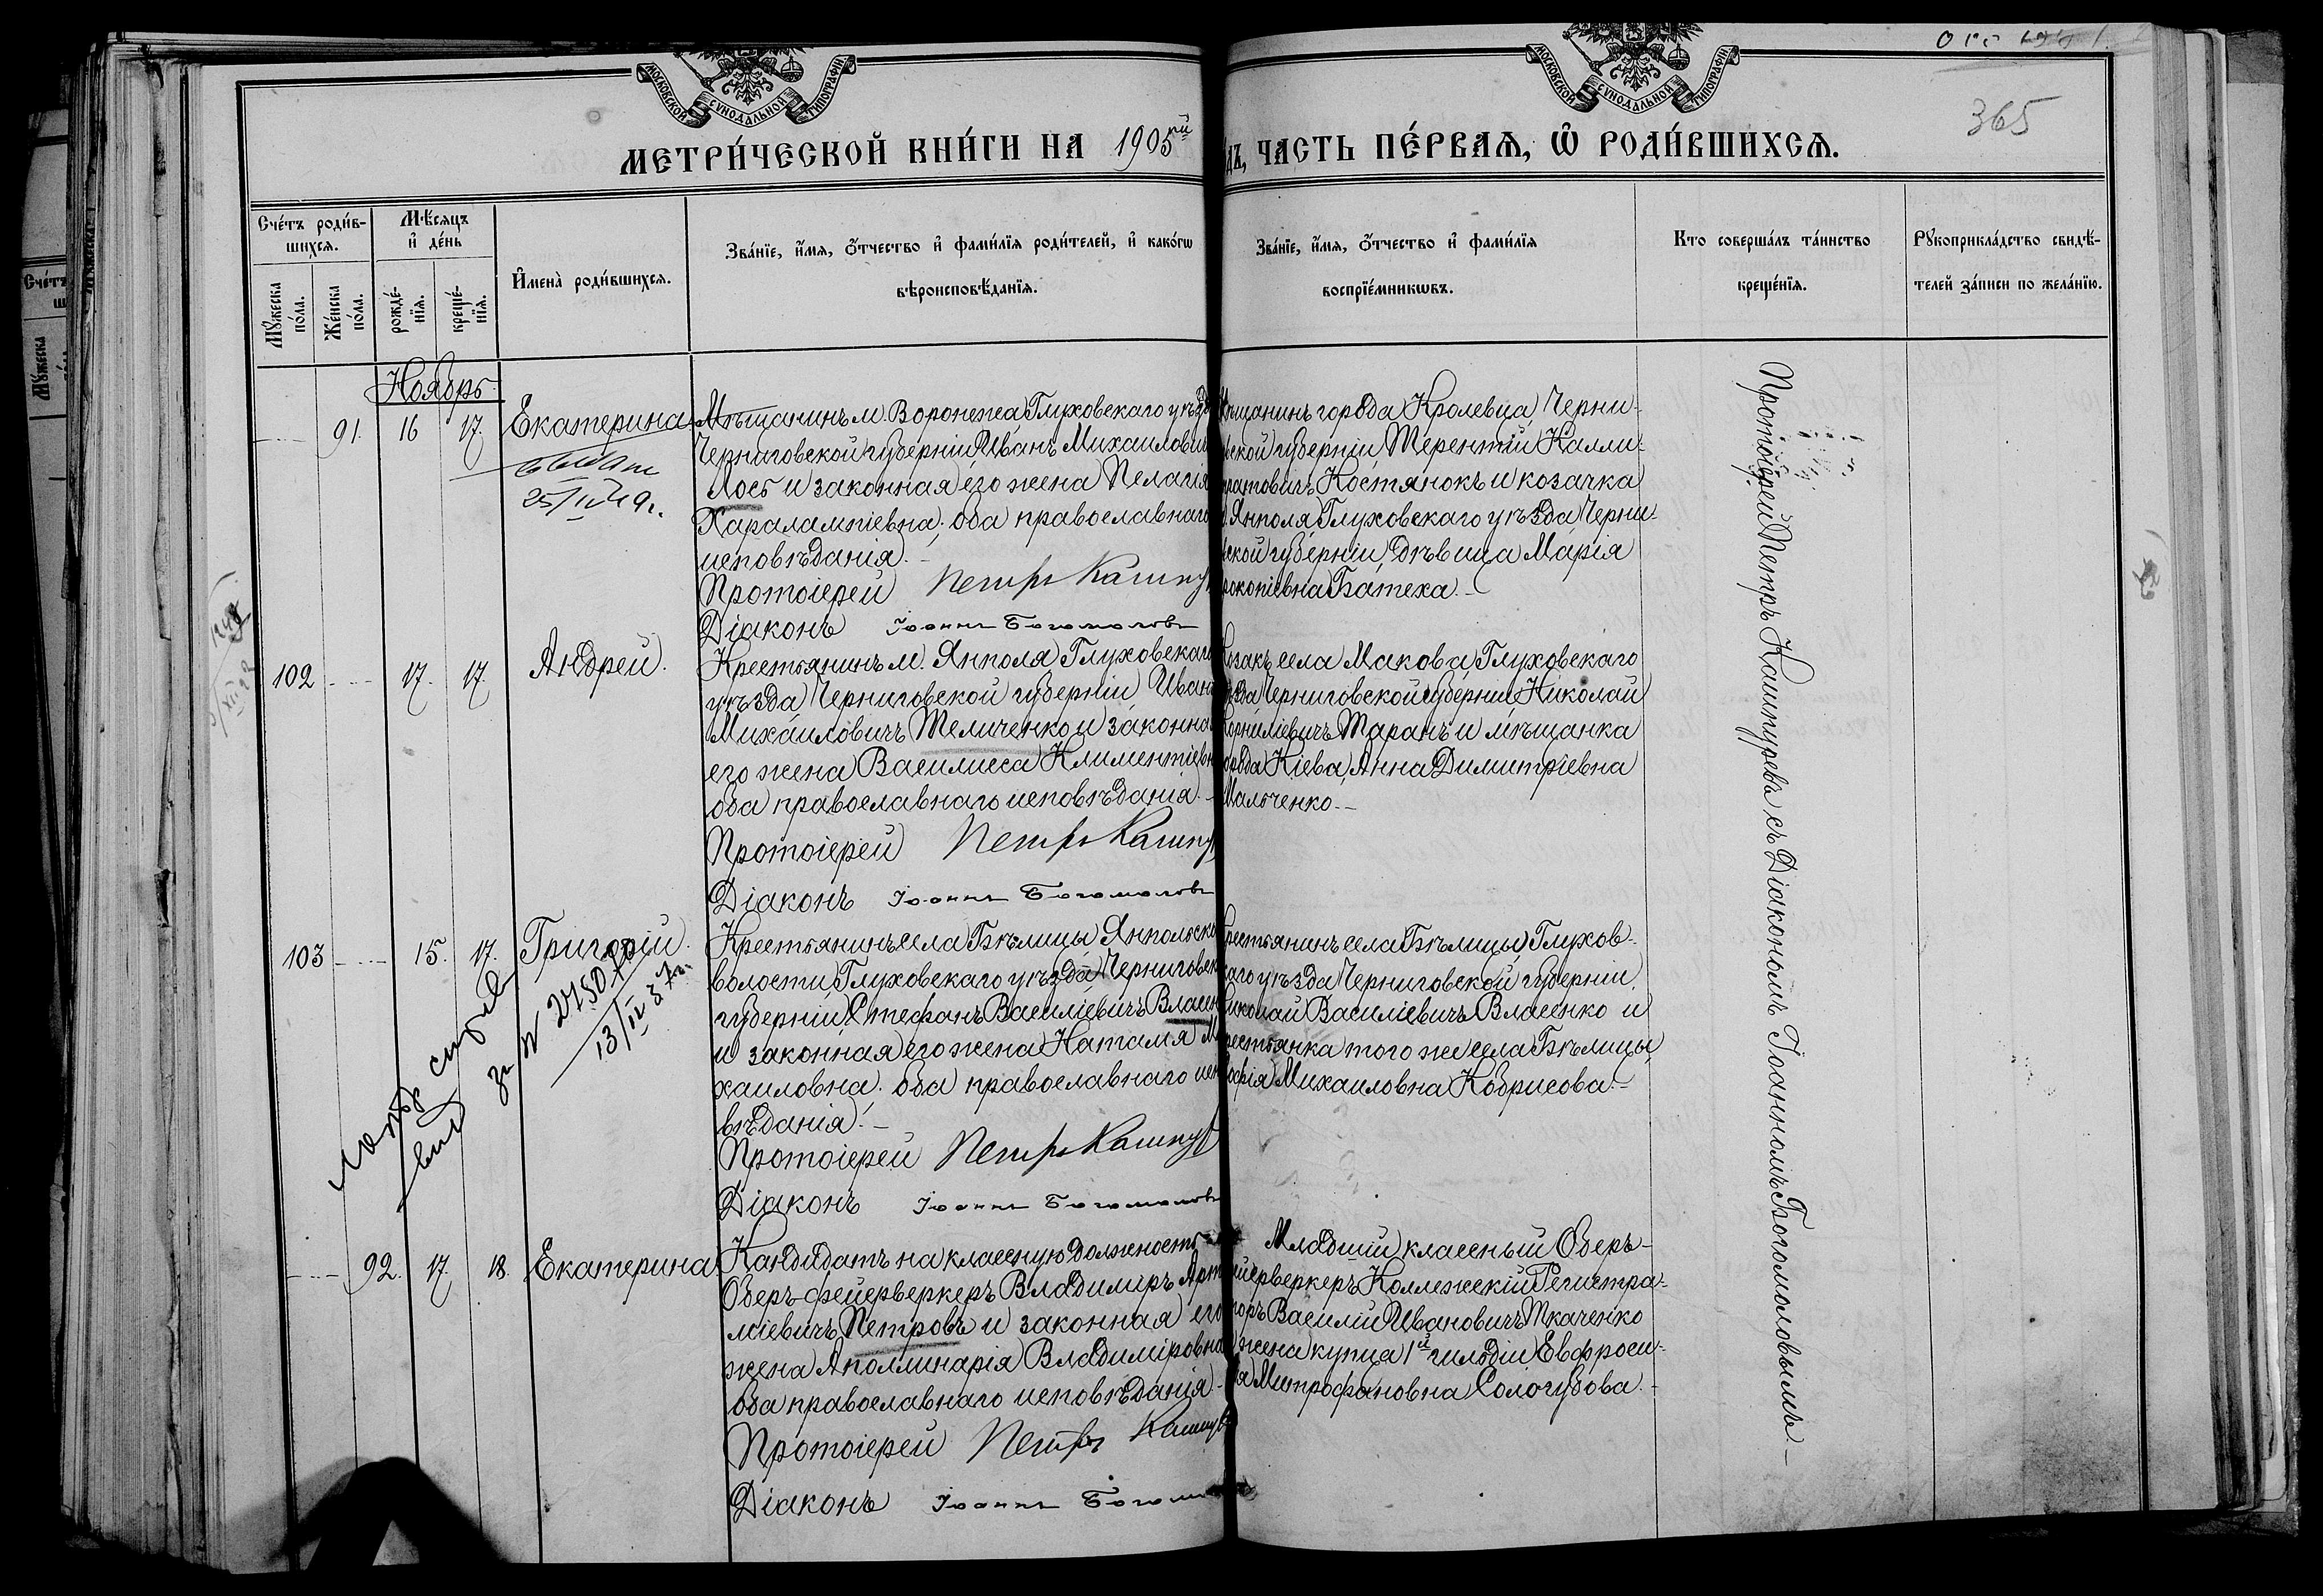 МОСКОВСКОЙ СѴНОДАЛЬНОЙ ТИПОГРАФІИ
МОСКОВСКОЙ СѴНОДАЛЬНОЙ ТИПОГРАФІИ
365
МЕТРИ́ЧЕСКОЙ КНИ́ГИ НА 1905й
ДЪ, ЧАСТЬ ПЕ́РВАѦ, Ѡ҆ РОДИ́ВШИХСѦ.
Сче́тъ роди́в-
шихсѧ.
Мѣ́сѧцъ
и҆ де́нь
Мꙋ́жеска
по́ла.
Же́нска
по́ла.
рожде́-
нїѧ.
креще́-
нїѧ.
И҆мена̀ роди́вшихсѧ.
Зва́нїе, и҆́мѧ, ѻ҆́тчество и҆ фами́лїѧ роди́телей, и҆ како́гѡ
вѣроисповѣ́данїѧ.
Зва́нїе, и҆́мѧ, ѻ҆́тчество и҆ фами́лїѧ
воспрїе́мникѡвъ.
Кто соверша́лъ та́инство
креще́нїѧ.
Рꙋкоприкла́дство свидѣ́-
телей за́писи по жела́нїю.
Ноябрь
91. 16 17. Екатерина
25/IV 49г.
Мѣщанинъ м. Воронежа Глуховскаго уѣзда
Черниговской губерніи Иванъ Михаилович
Лось и законная его жена Пелагія
Харалампіевна; оба православнаго
исповѣданія. –
Протоіерей Петръ Кашпур
Діаконъ Іоаннъ Богомолов
щанинъ города Кролевца, Черни-
ской губерніи Терентій Калли-
ратовичъ Костянокъ и козачка
Янполя Глуховскаго уѣзда, Черни-
ской губерніи, дѣвица Марія
рокопіевна Батеха. –
102 17. 17. Андрей.
Крестьянинъ м. Янполя Глуховскаго
уѣзда Черниговской губерніи Иван
Михаиловичъ Теличенко и законна
его жена Василиса Климентіевн
оба православнаго исповѣданія. –
Протоіерей Петръ Кашпур
Діаконъ Іоаннъ Богомолов
озакъ села Макова Глуховскаго
зда Черниговской губерніи Николай
Корниліевичъ Таранъ и мѣщанка
орода Кіева, Анна Димитріевна
Мальченко. –
103 15. 17. Григорій.
за № 2750
13/IV 37г.
Крестьянинъ села Бѣлицы Янпольско
волости, Глуховскаго уѣзда, Черниговск
губерніи, Стефанъ Василіевичъ Власен
и законная его жена Наталія Ми
хаиловна. оба православнаго испо
вѣданія. –
Протоіерей Петръ Кашпур
Діаконъ Іоаннъ Богомолов
рестьянинъ села Бѣлицы, Глухов-
каго уѣзда Черниговской губерніи,
Николай Василіевичъ Власенко и
рестьянка того же села Бѣлицы
офія Михаиловна Кобрисова. –
92. 17. 18. Екатерина
Кандидатъ на классную должность
Оберъ-фейерверкеръ Владиміръ Арте
міевичъ Петровъ и законная его
жена Аполлинарія Владиміровна
оба православнаго исповѣданія. –
Протоіерей Петръ Кашпур
Діаконъ Іоаннъ Богомол
Младшій классный Оберъ-
ейерверкеръ Коллежскій Регистра-
торъ Василій Ивановичъ Ткаченко
жена купца 1й гильдіи Евфроси-
на Митрофановна Сологубова. –
Протоіерей Петръ Кашпуревъ съ Діакономъ Іоанномъ Богомоловымъ. –